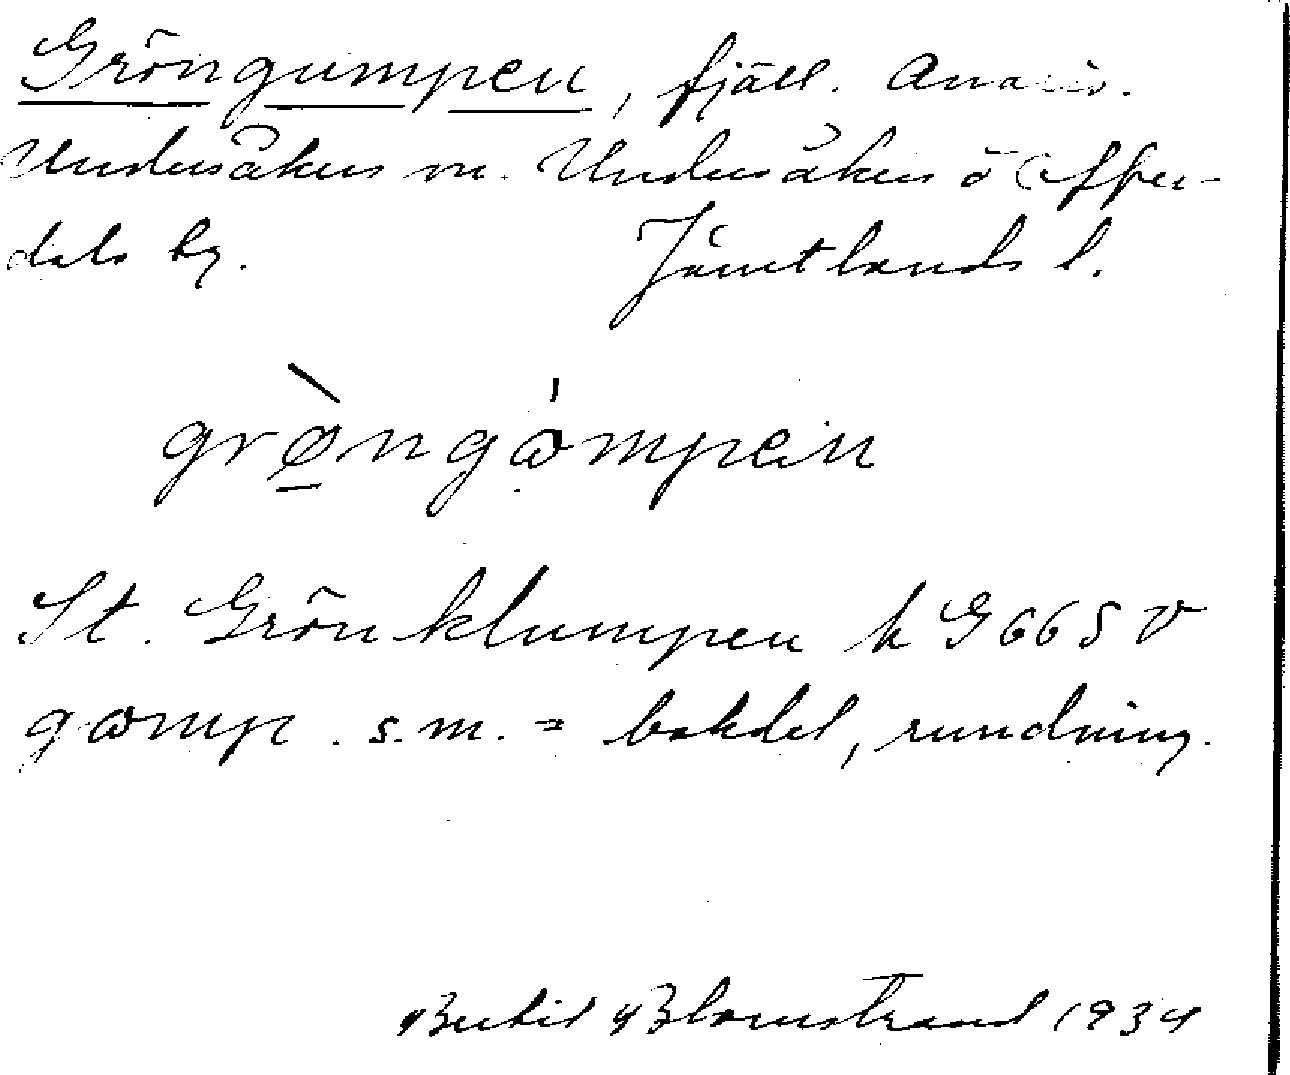 Gröngumpen, fjäll. Anaris.
Undersåkers sn. Undersåkers o Offer-
dals by. Jämtlands l.
grø̀ngɷ̀mpen
St. Grönklumpen k G 66 S V
gɷmp. s.m. = bakdel, rundning.
Bertil Blomstrand 1934